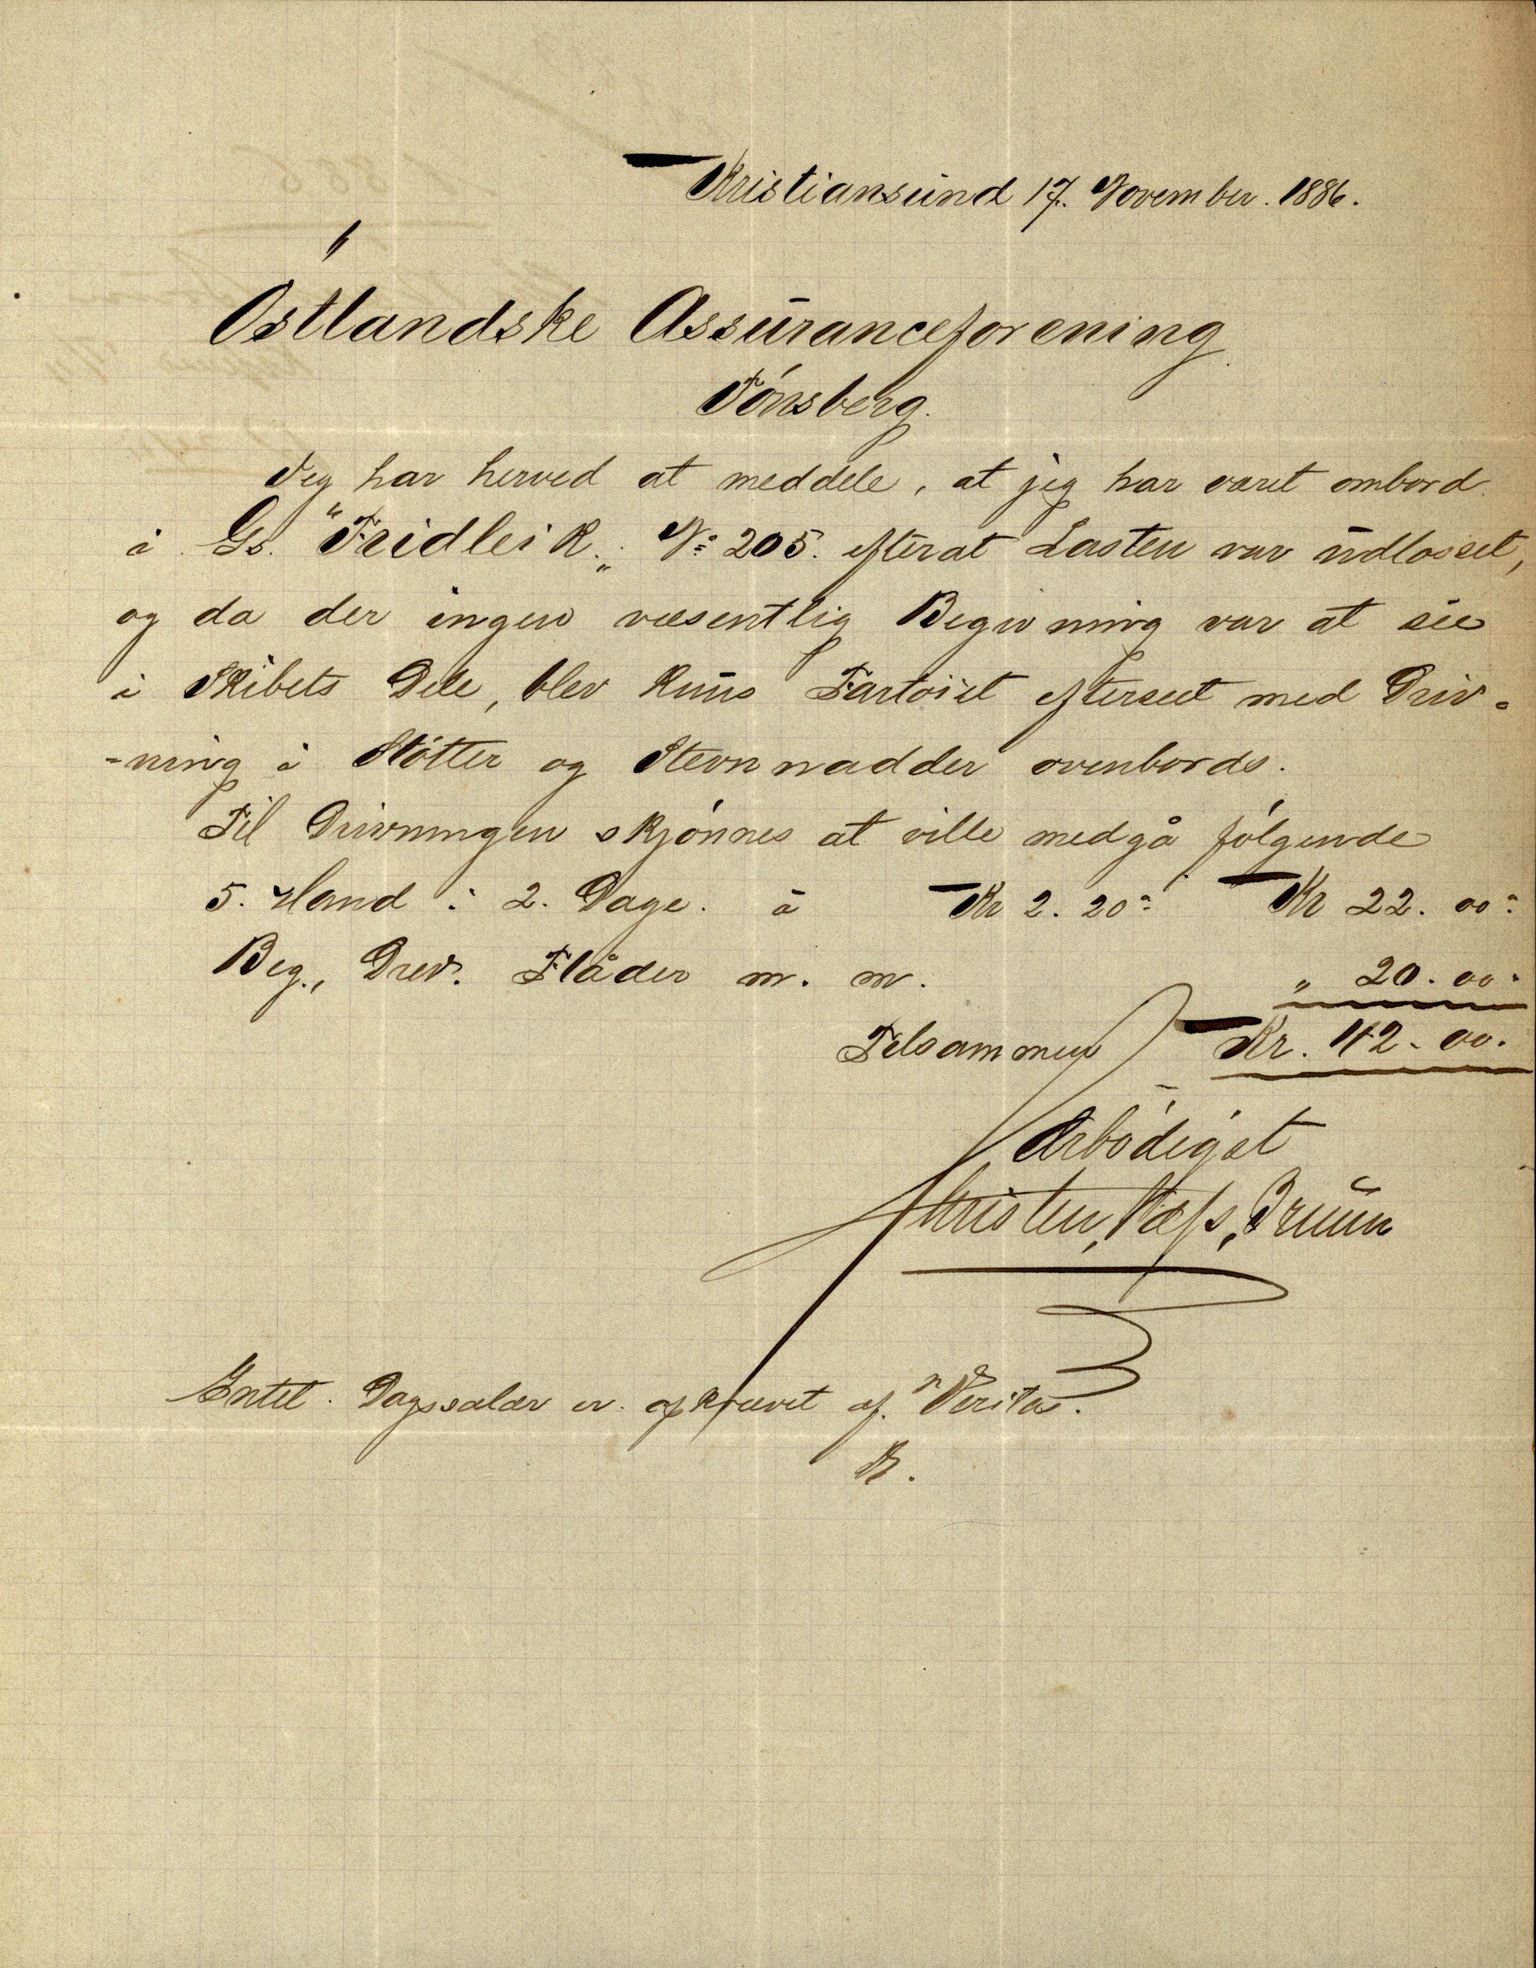 Kristiansund 17. November. 1886.
Östlandske Assuranceforening
Tönsberg.
Jeg har herved at meddele, at jeg har været ombord
i Gs. "Fridleik" No 205. efterat Lasten var udlosset,
og da der ingen væsentlig Begivning var at see
i Skibets Dele, blev kuns Fartöiet efterseet med Driv-
-ning i Stötter og Stevnnadder ovenbords.
Til Drivningen skjönnes at ville medgå fölgende
5. Mand i 2. Dage. à Kr 2. 20 Kr 22. 00
Beg., Drev. m. m. " 20. 00
Tilsammen Kr. 42. 00.
Ærbödigst
Christen, Næss, Bruun
Intet Dagssalær er afkrævet af "Veritas".
B.